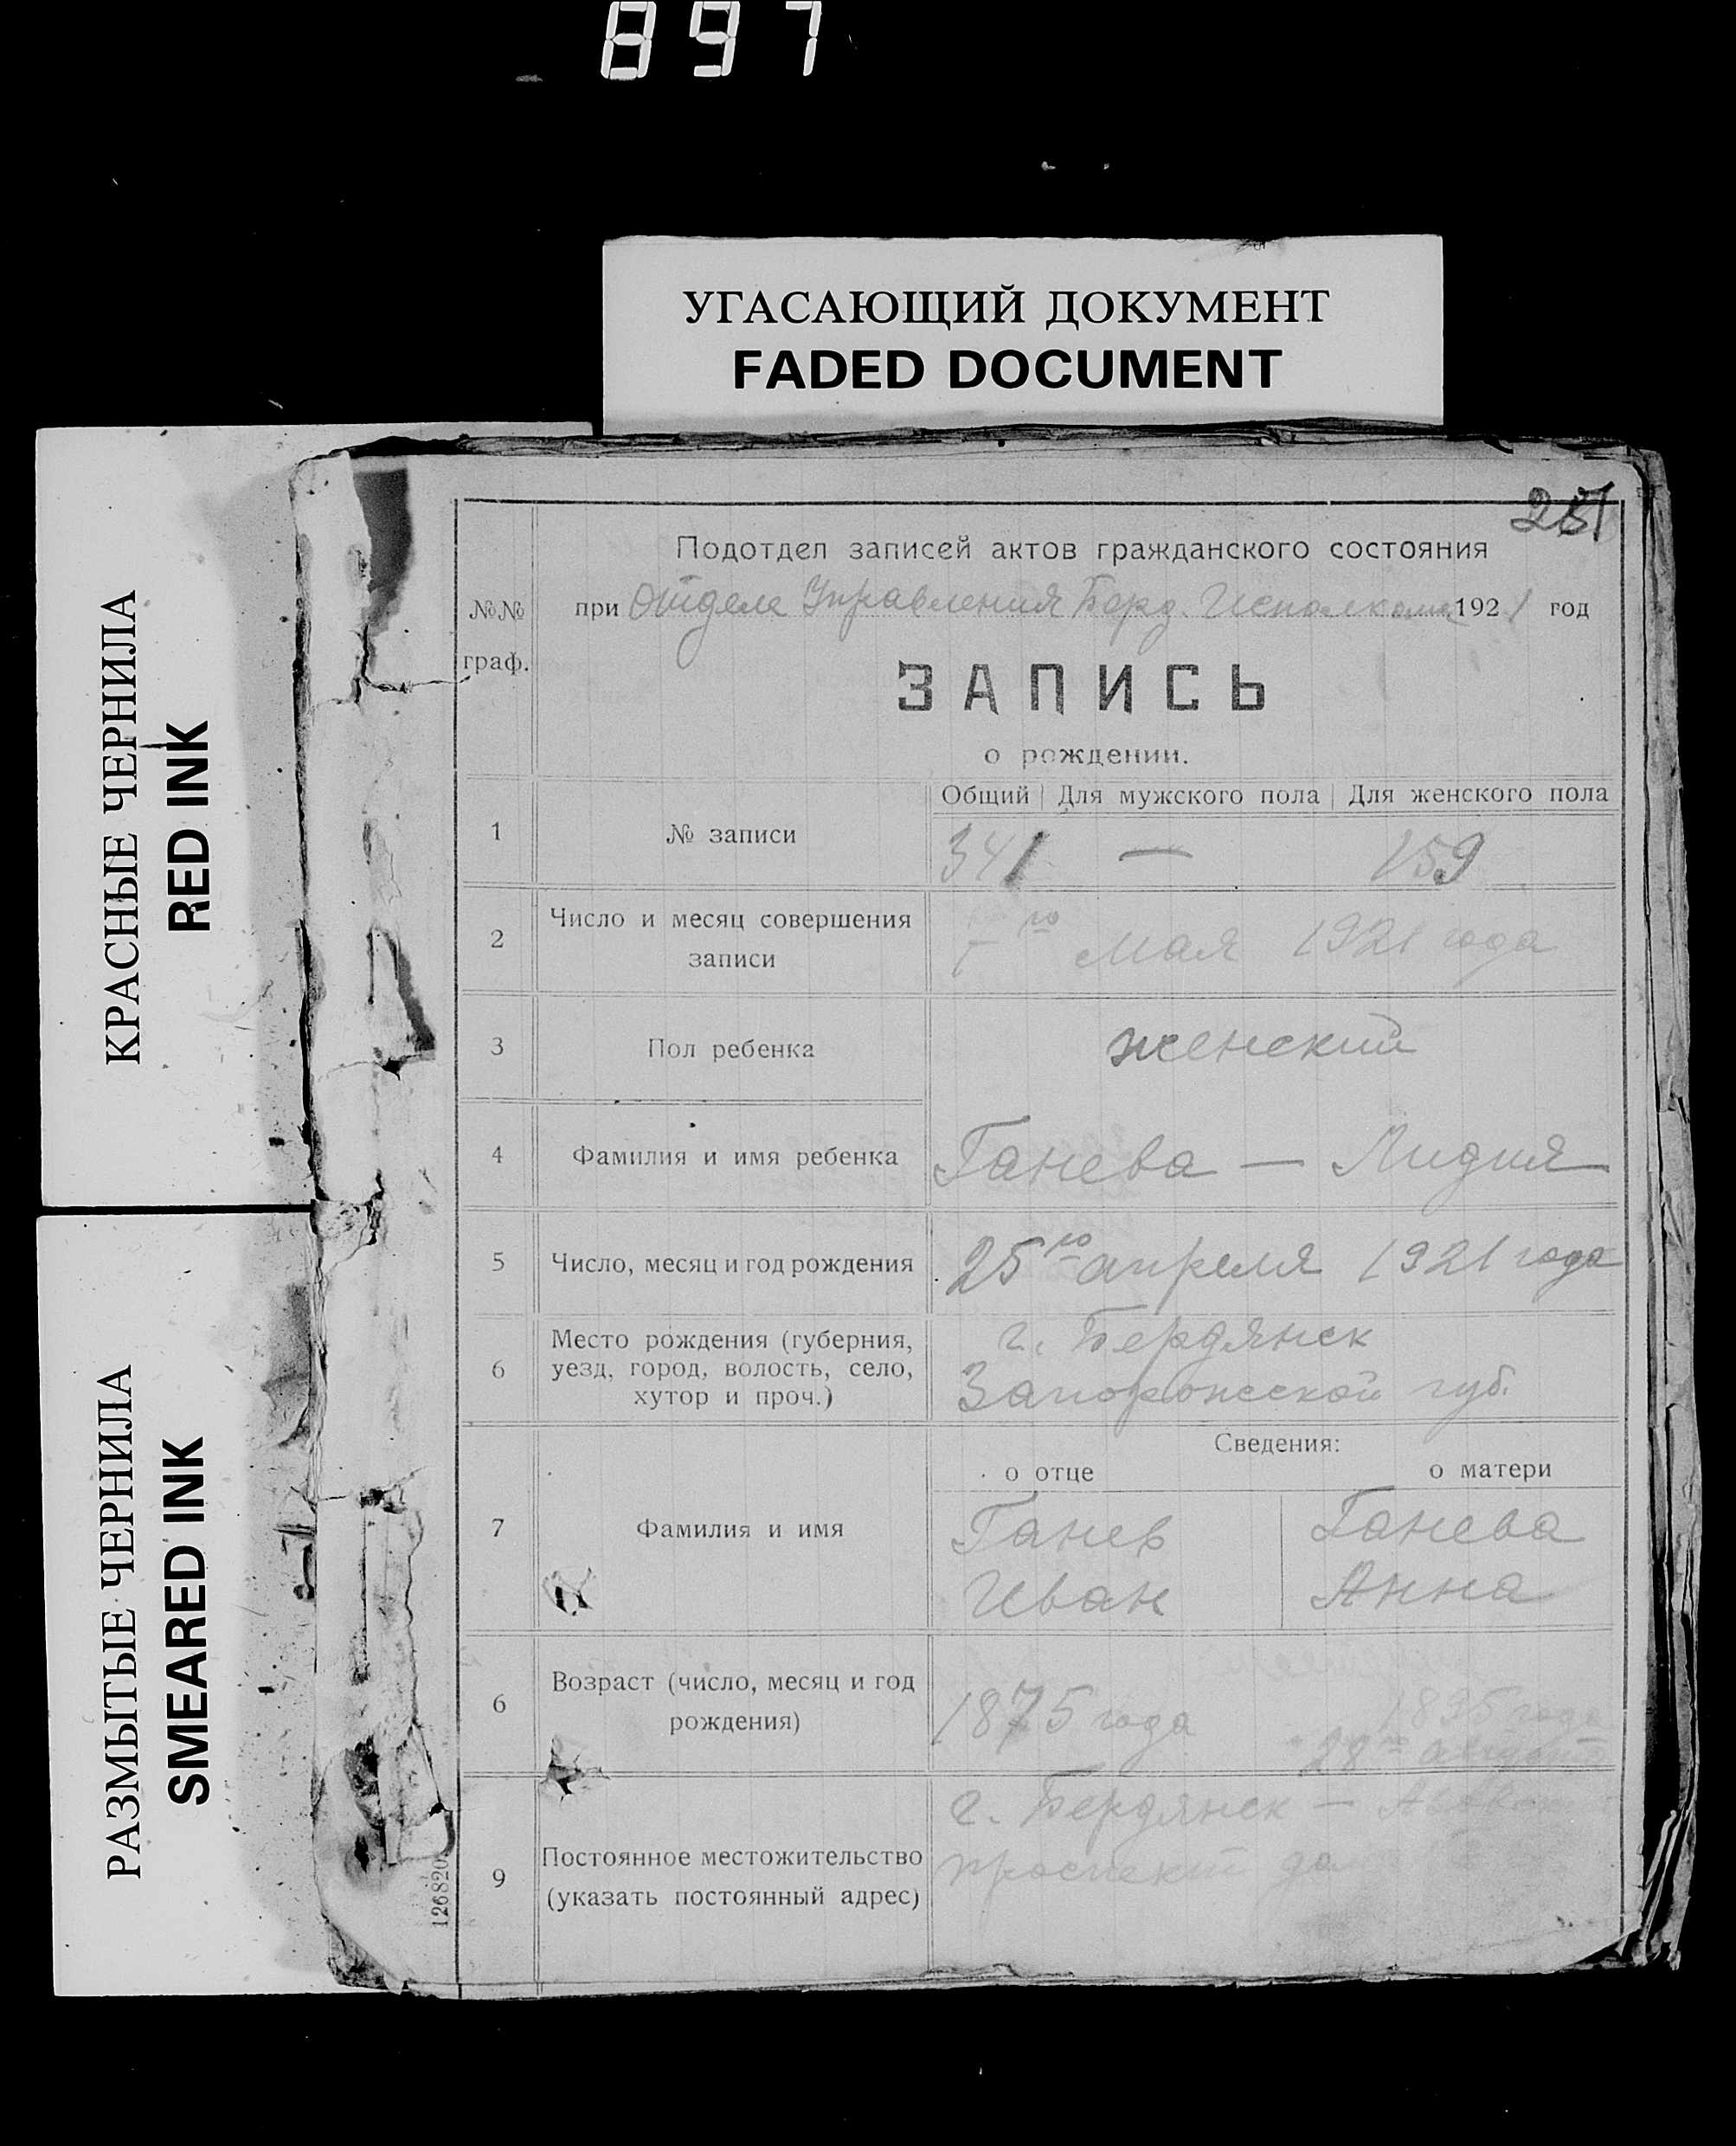 897
УГАСАЮЩИЙ ДОКУМЕНТ
FADED DOCUMENT
КРАСНЫЕ ЧЕРНИЛА
RED INK
РАЗМЫТЫЕ ЧЕРНИЛА
SMEARED INK
Подотдел записей актов гражданского состояния
№№ граф.
при Отделе Управления Берд. Исполкома 1921 год
ЗАПИСЬ
о рождении.
Общий Для мужского пола Для женского пола
1 № записи 341 — 159
2 Число и месяц совершения записи
7го мая 1921 года
3 Пол ребенка женский
4 Фамилия и имя ребенка Ганева — Лидия
5 Число, месяц и год рождения 25го апреля 1921 года
6 Место рождения (губерния,
уезд, город, волость, село,
хутор и проч.)
г. Бердянск
Запорожской губ.
Сведения:
о отце о матери
7 Фамилия и имя
Ганев Ганева
Иван Анна
6 Возраст (число, месяц и год
рождения)
1875 года 1895 года
28го августа
9 Постоянное местожительство
(указать постоянный адрес)
г. Бердянск —
проспект дом
126820